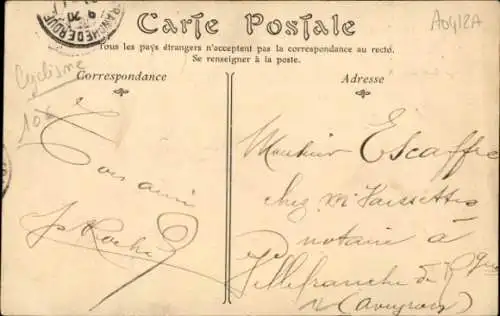 FRANCHE DE ROUE
9
20
Carte Postale
A0412A
Tous les pays étrangers n'acceptent pas la correspondance au recto.
Se renseigner à la poste.
Correspondance
Adresse
Cyclisme
10€
Ton ami
Monsieur Escaffre
chez Mr Vaissettes
notaire à
Villefranche de Rgue
(Aveyron)